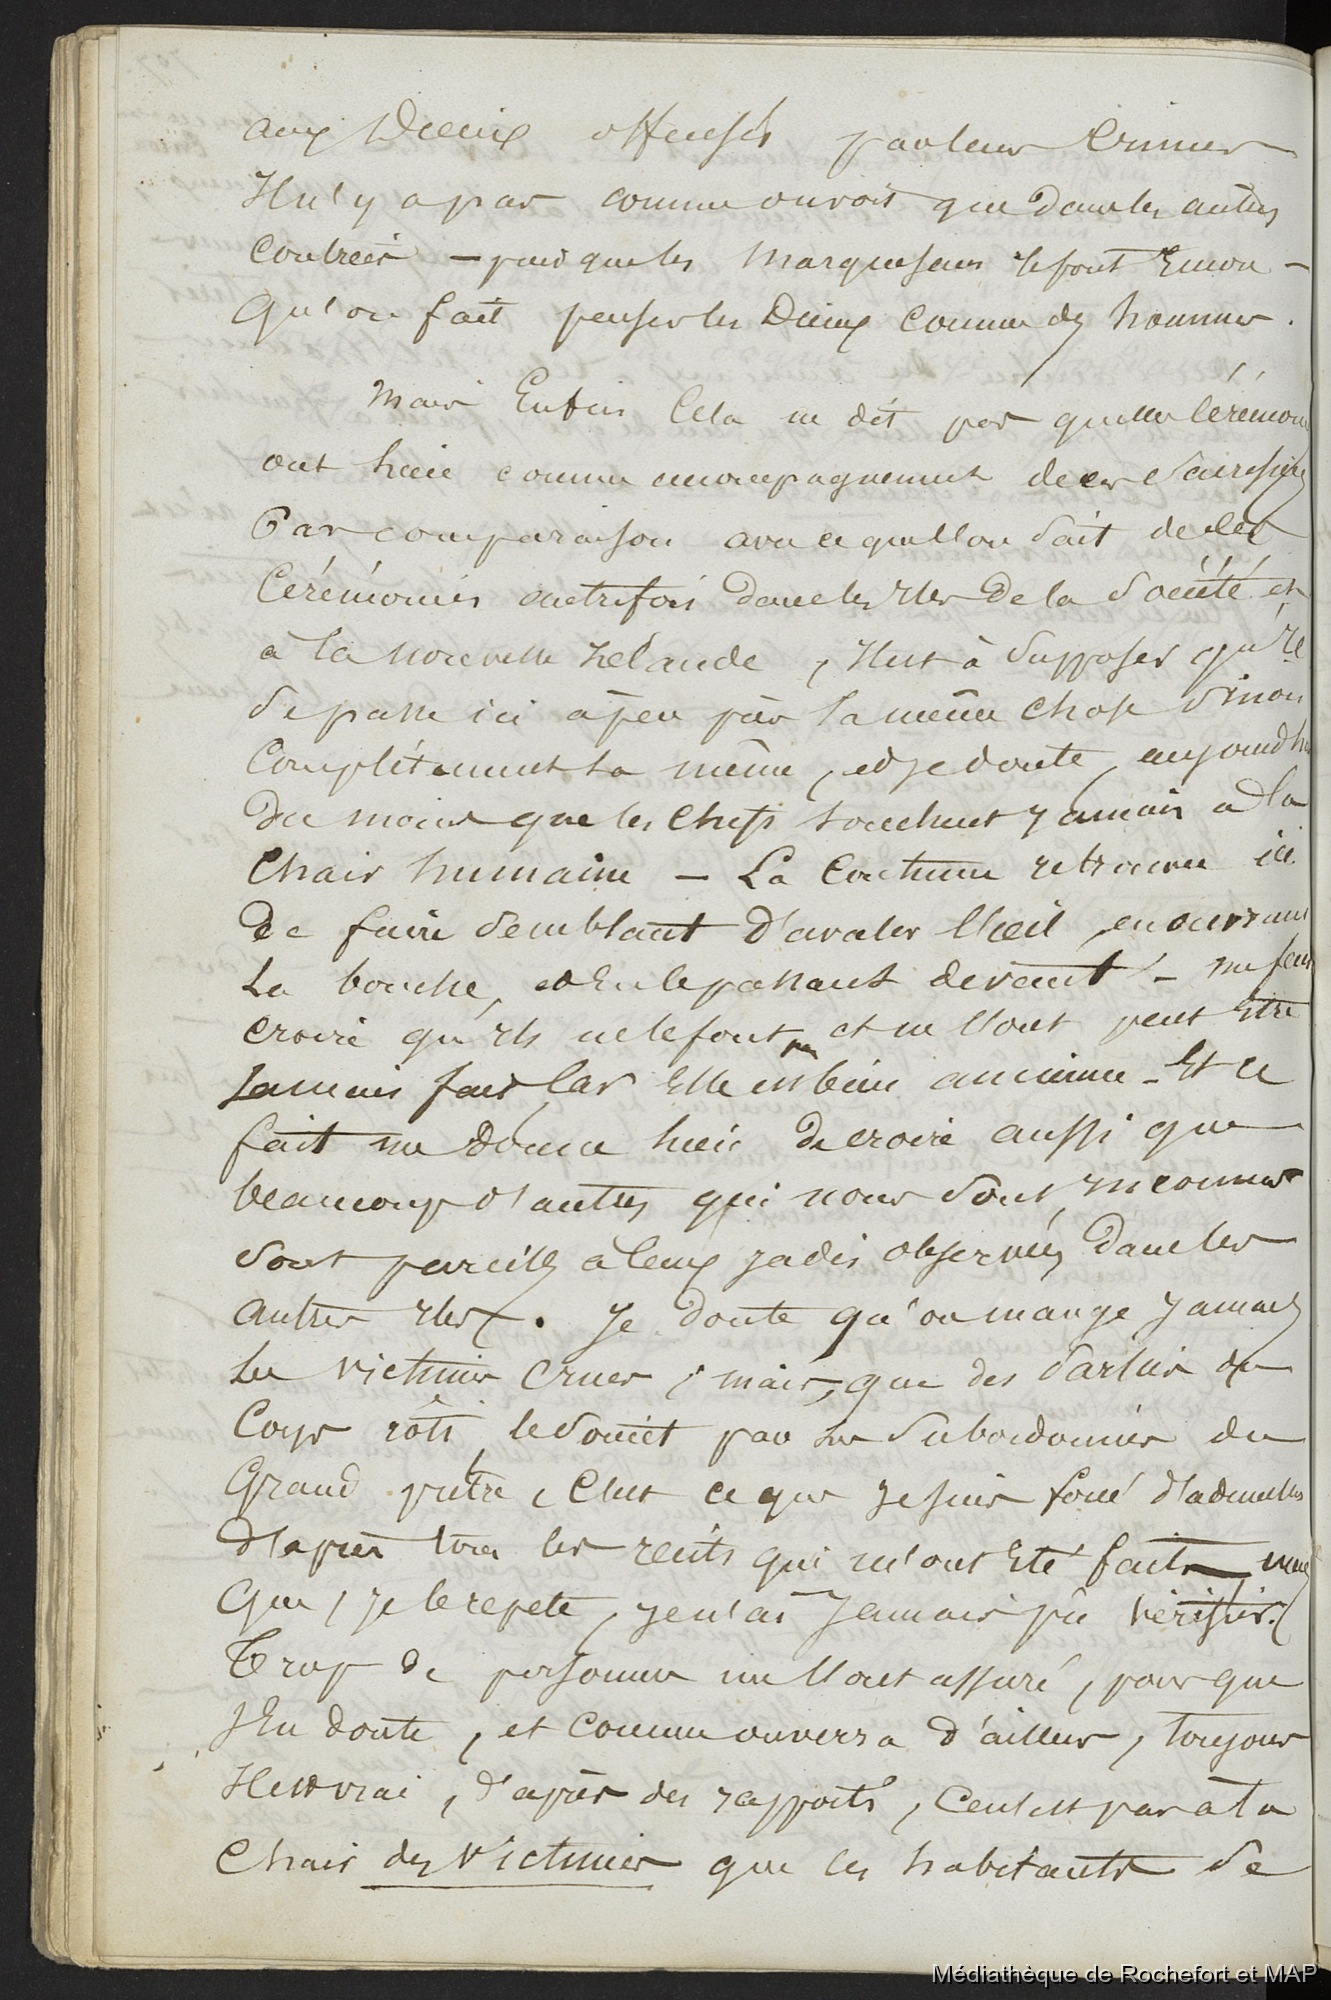 aux Dieux offensés par leurs Crimes
Il n'y a pas comme on voit que dans les autres
Contrées — puisque les Marquesans le font Encore —
Qu'on fait penser les Dieux Comme des hommes.
Mais Enfin Cela ne dit pas quelles Cérémonies
ont lieu comme accompagnement de ces Sacrifices
Par comparaison avec ce que l'on Sait de Ces
Cérémonies autrefois dans les Iles De la Société et
à la Nouvelle Zélande, Il est à Supposer qu'Il
Se passe ici à peu près la même Chose Sinon
Complétement la même, et Je doute, aujourd'hui
Du moins que les Chefs touchent Jamais à la
Chair humaine — La Coutume retrouvée ici
De faire Semblant D'avaler l'œil, en ouvrant
La bouche, et En le passant devant — me fait
croire qu'Ils ne le font pas et ne l'ont peut Etre
Jamais fait, Car Elle est bien ancienne — Et ce
fait me donne lieu De croire aussi que
beaucoup d'autres qui nous Sont Inconnus
Sont pareils à Ceux Jadis observés, Dans les
Autres Iles. Je doute qu'on mange Jamais
Les Victimes Crues, mais, que des parties de
Corps rôti le Soient par les Subordonnés du
Grand prêtre, C'est ce que Je suis forcé d'admettre
D'après tous les récits qui m'ont Eté faits mais
Que, Je le repete, Je n'ai Jamais pû vérifier.
Trop de personnes me l'ont assuré, pour que
J'En doute, et Comme on verra d'ailleurs, toujours
Il est vrai, d'après des rapports, Ce n'est pas à la
Chair des Victimes que les habitants Se
Médiathèque de Rochefort et MAP